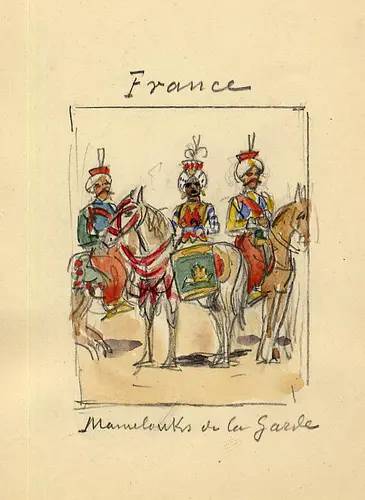 France
Mamelouks de la Garde